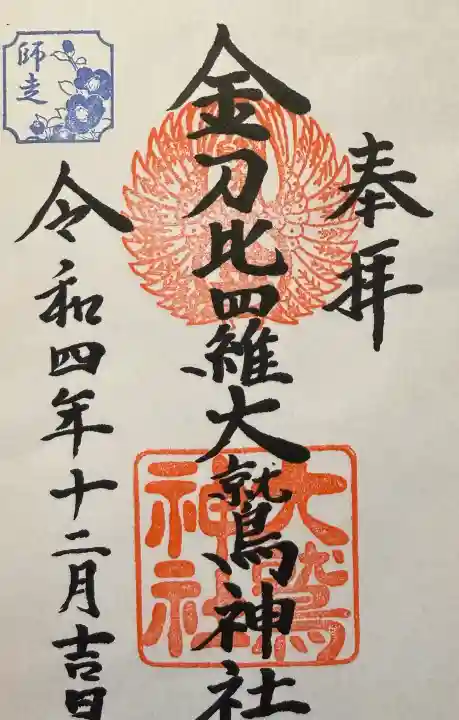 奉拝
金刀比羅大鷲神社
大鷲
神社
令和四年十二月吉日
師走